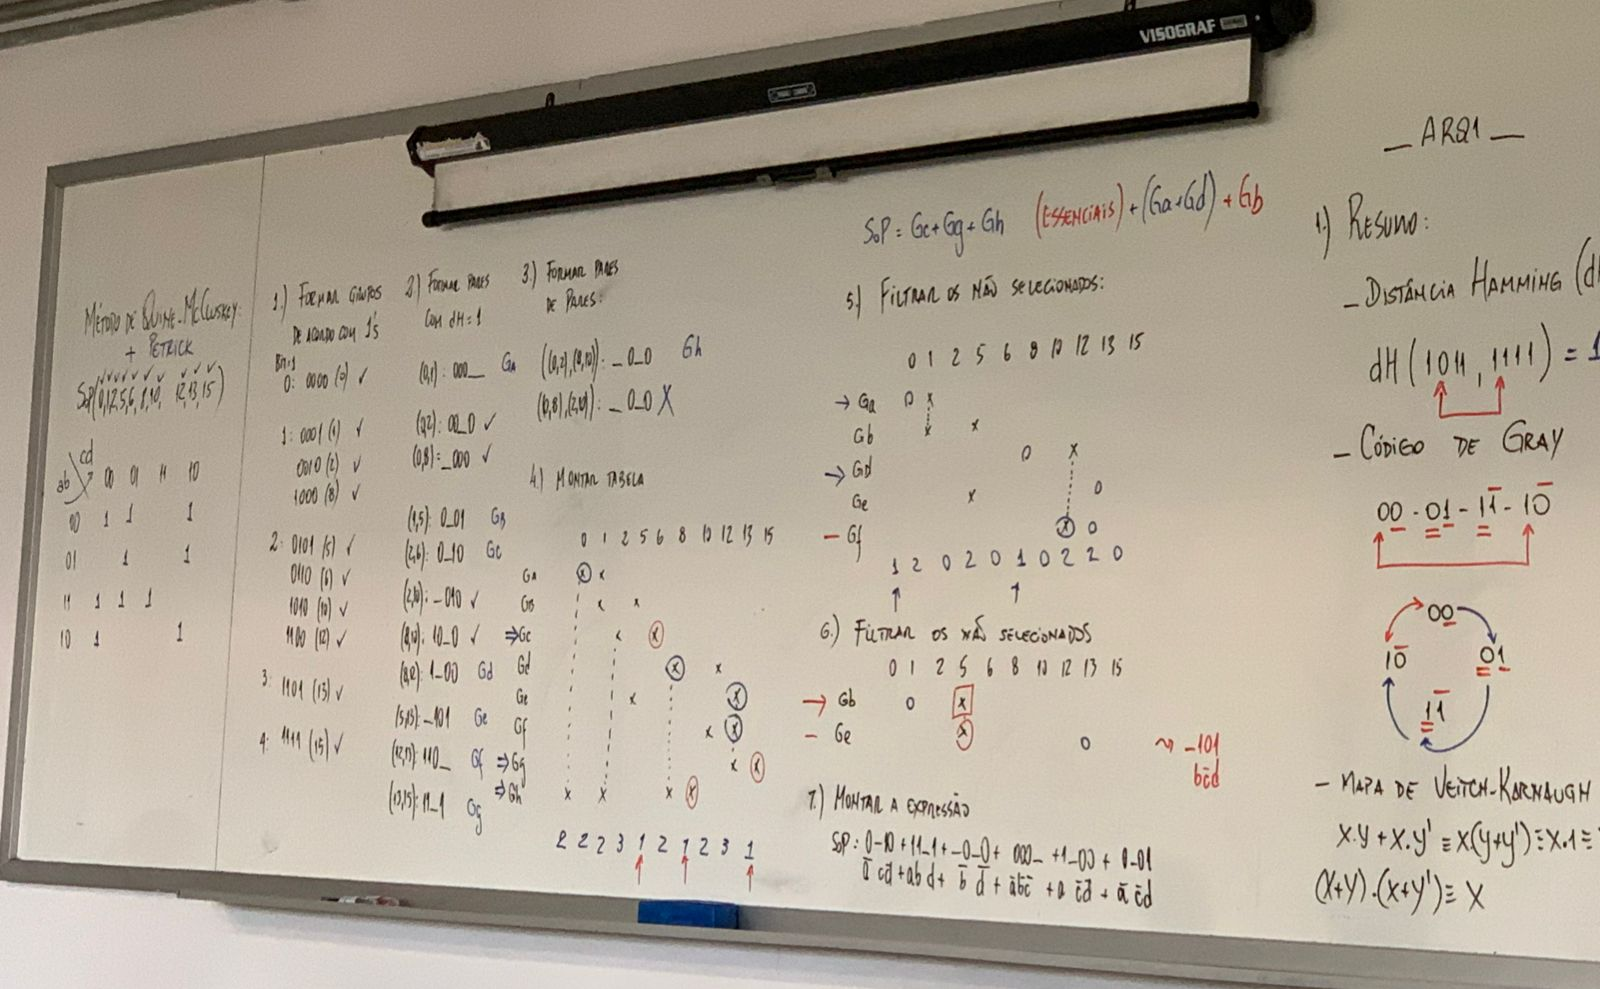 VISOGRAF
Método de Quine-McCluskey:
+ Petrick
SoP(0,1,2,5,6,8,10, 12,13,15)
cd
ab 00 01 11 10
00 1 1 1
01 1 1
11 1 1 1
10 1 1
1.) Formar grupos
de acordo com 1's
0: 0000 (0) ✓
1: 0001 (1) ✓
0010 (2) ✓
1000 (8) ✓
2: 0101 (5) ✓
0110 (6) ✓
1010 (10) ✓
1100 (12) ✓
3: 1101 (13) ✓
4: 1111 (15) ✓
2.) Formar pares
com dH=1
(0,1): 000_ Ga
(0,2): 00_0 ✓
(0,8): _000 ✓
(1,5): 0_01 Gb
(2,6): 0_10 Gc
(2,10): _010 ✓
(8,10): 10_0 ✓
(8,12): 1_00 Gd
(5,13): _101 Ge
(12,13): 110_ Gf
(13,15): 11_1 Gg
3.) Formar pares
de pares:
((0,2),(8,10)): _0_0 Gh
(0,8),(2,10)): _0_0 X
4.) Montar tabela
0 1 2 5 6 8 10 12 13 15
Ga x x
Gb x x
⇒ Gc x x
Gd x x
Ge x x
Gf x x
⇒ Gg x x
⇒ Gh x x x x
2 2 2 3 1 2 1 2 3 1
SoP = Gc+Gg+Gh (essenciais) + (Ga+Gd) + Gb
5.) Filtrar os não selecionados:
0 1 2 5 6 8 10 12 13 15
→ Ga 0 x
Gb x x
→ Gd 0 x
Ge x 0
- Gf x 0
1 2 0 2 0 1 0 2 2 0
6.) Filtrar os não selecionados
0 1 2 5 6 8 10 12 13 15
→ Gb 0 x
- Ge x 0 -101
bc̄d
7.) Montar a expressão
SoP: 0-10 + 11-1 + -0-0 + 000_ + 1-00 + 0-01
ā cd̄ + ab d + b̄ d̄ + āb̄c̄ + a c̄d̄ + ā c̄d
_ ARQ1 _
1.) Resumo:
- Distância Hamming (d
dH (1011, 1111) = 1
- Código de Gray
00 - 01 - 11 - 10
00
10 01
11
- Mapa de Veitch-Karnaugh
x.y + x.y' ≡ x(y+y') ≡ x.1 ≡
(x+y).(x+y') ≡ x